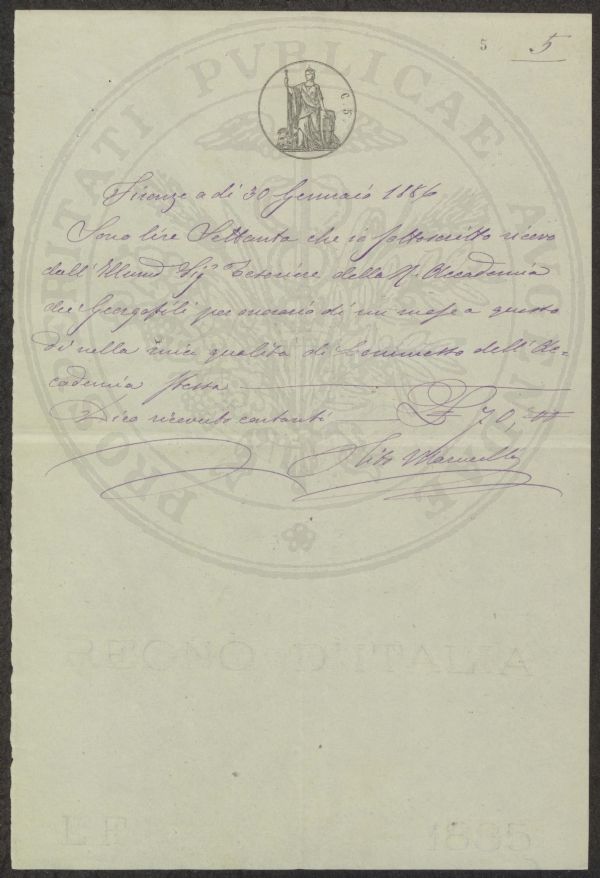 5 5
PROSPERITATI PVBLICAE
C. 5.
Firenze a di 30 Gennaio 1886
Sono lire Settanta che io sottoscritto ricevo
dall' Illmo Sigr Tesoriere della R. Accademia
dei Georgofili per onorario di un mese a questo
dì nella mia qualità di Commesso dell' Ac=
cademia stessa
Dico ricevuto contanti £ 70,00
Tito
REGNO D'ITALIA
1885